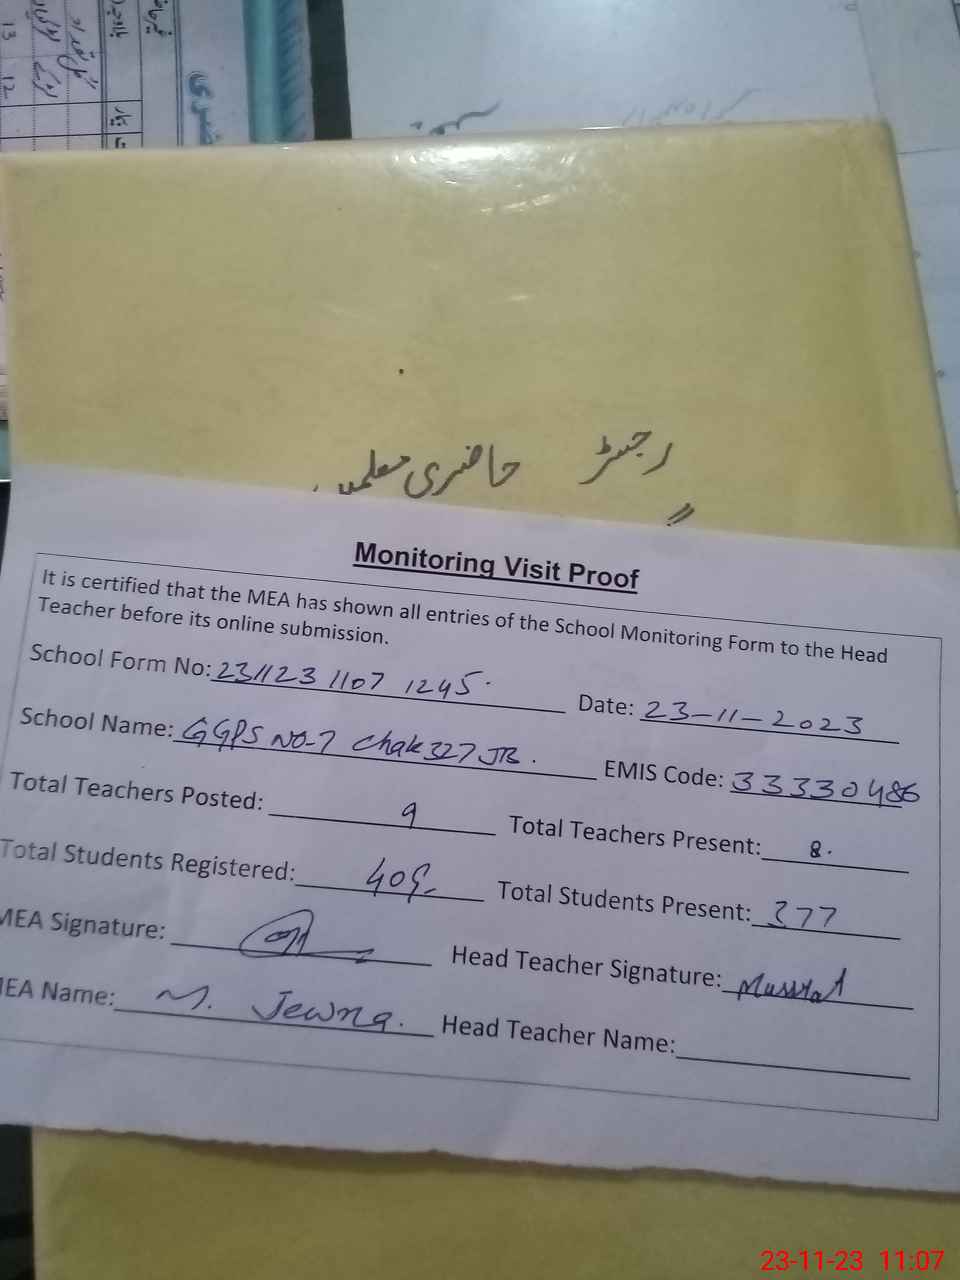 رجسٹر حاضری معلمین
Monitoring Visit Proof
It is certified that the MEA has shown all entries of the School Monitoring Form to the Head
Teacher before its online submission.
School Form No: 231123 1107 1245 Date: 23-11-2023
School Name: GGPS NO-7 Chak 327 JB. EMIS Code: 33330486
Total Teachers Posted: 9 Total Teachers Present: 8.
Total Students Registered: 409 Total Students Present: 377
MEA Signature: Head Teacher Signature:
MEA Name: M. Head Teacher Name:
23-11-23 11:07